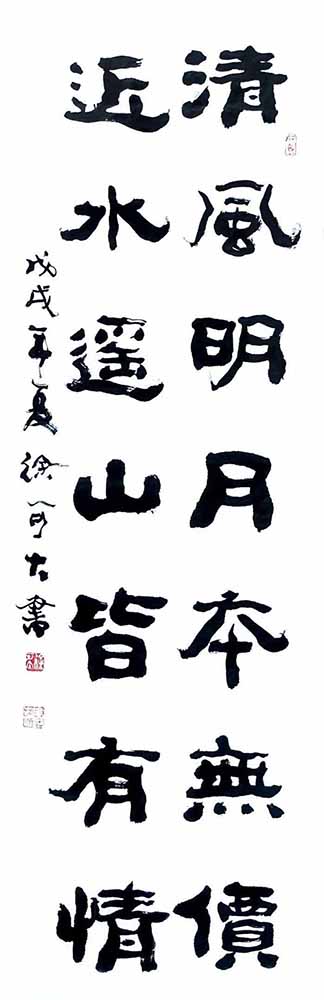 清風明月本無價
近水遥山皆有情
戊戌年夏徐可大書